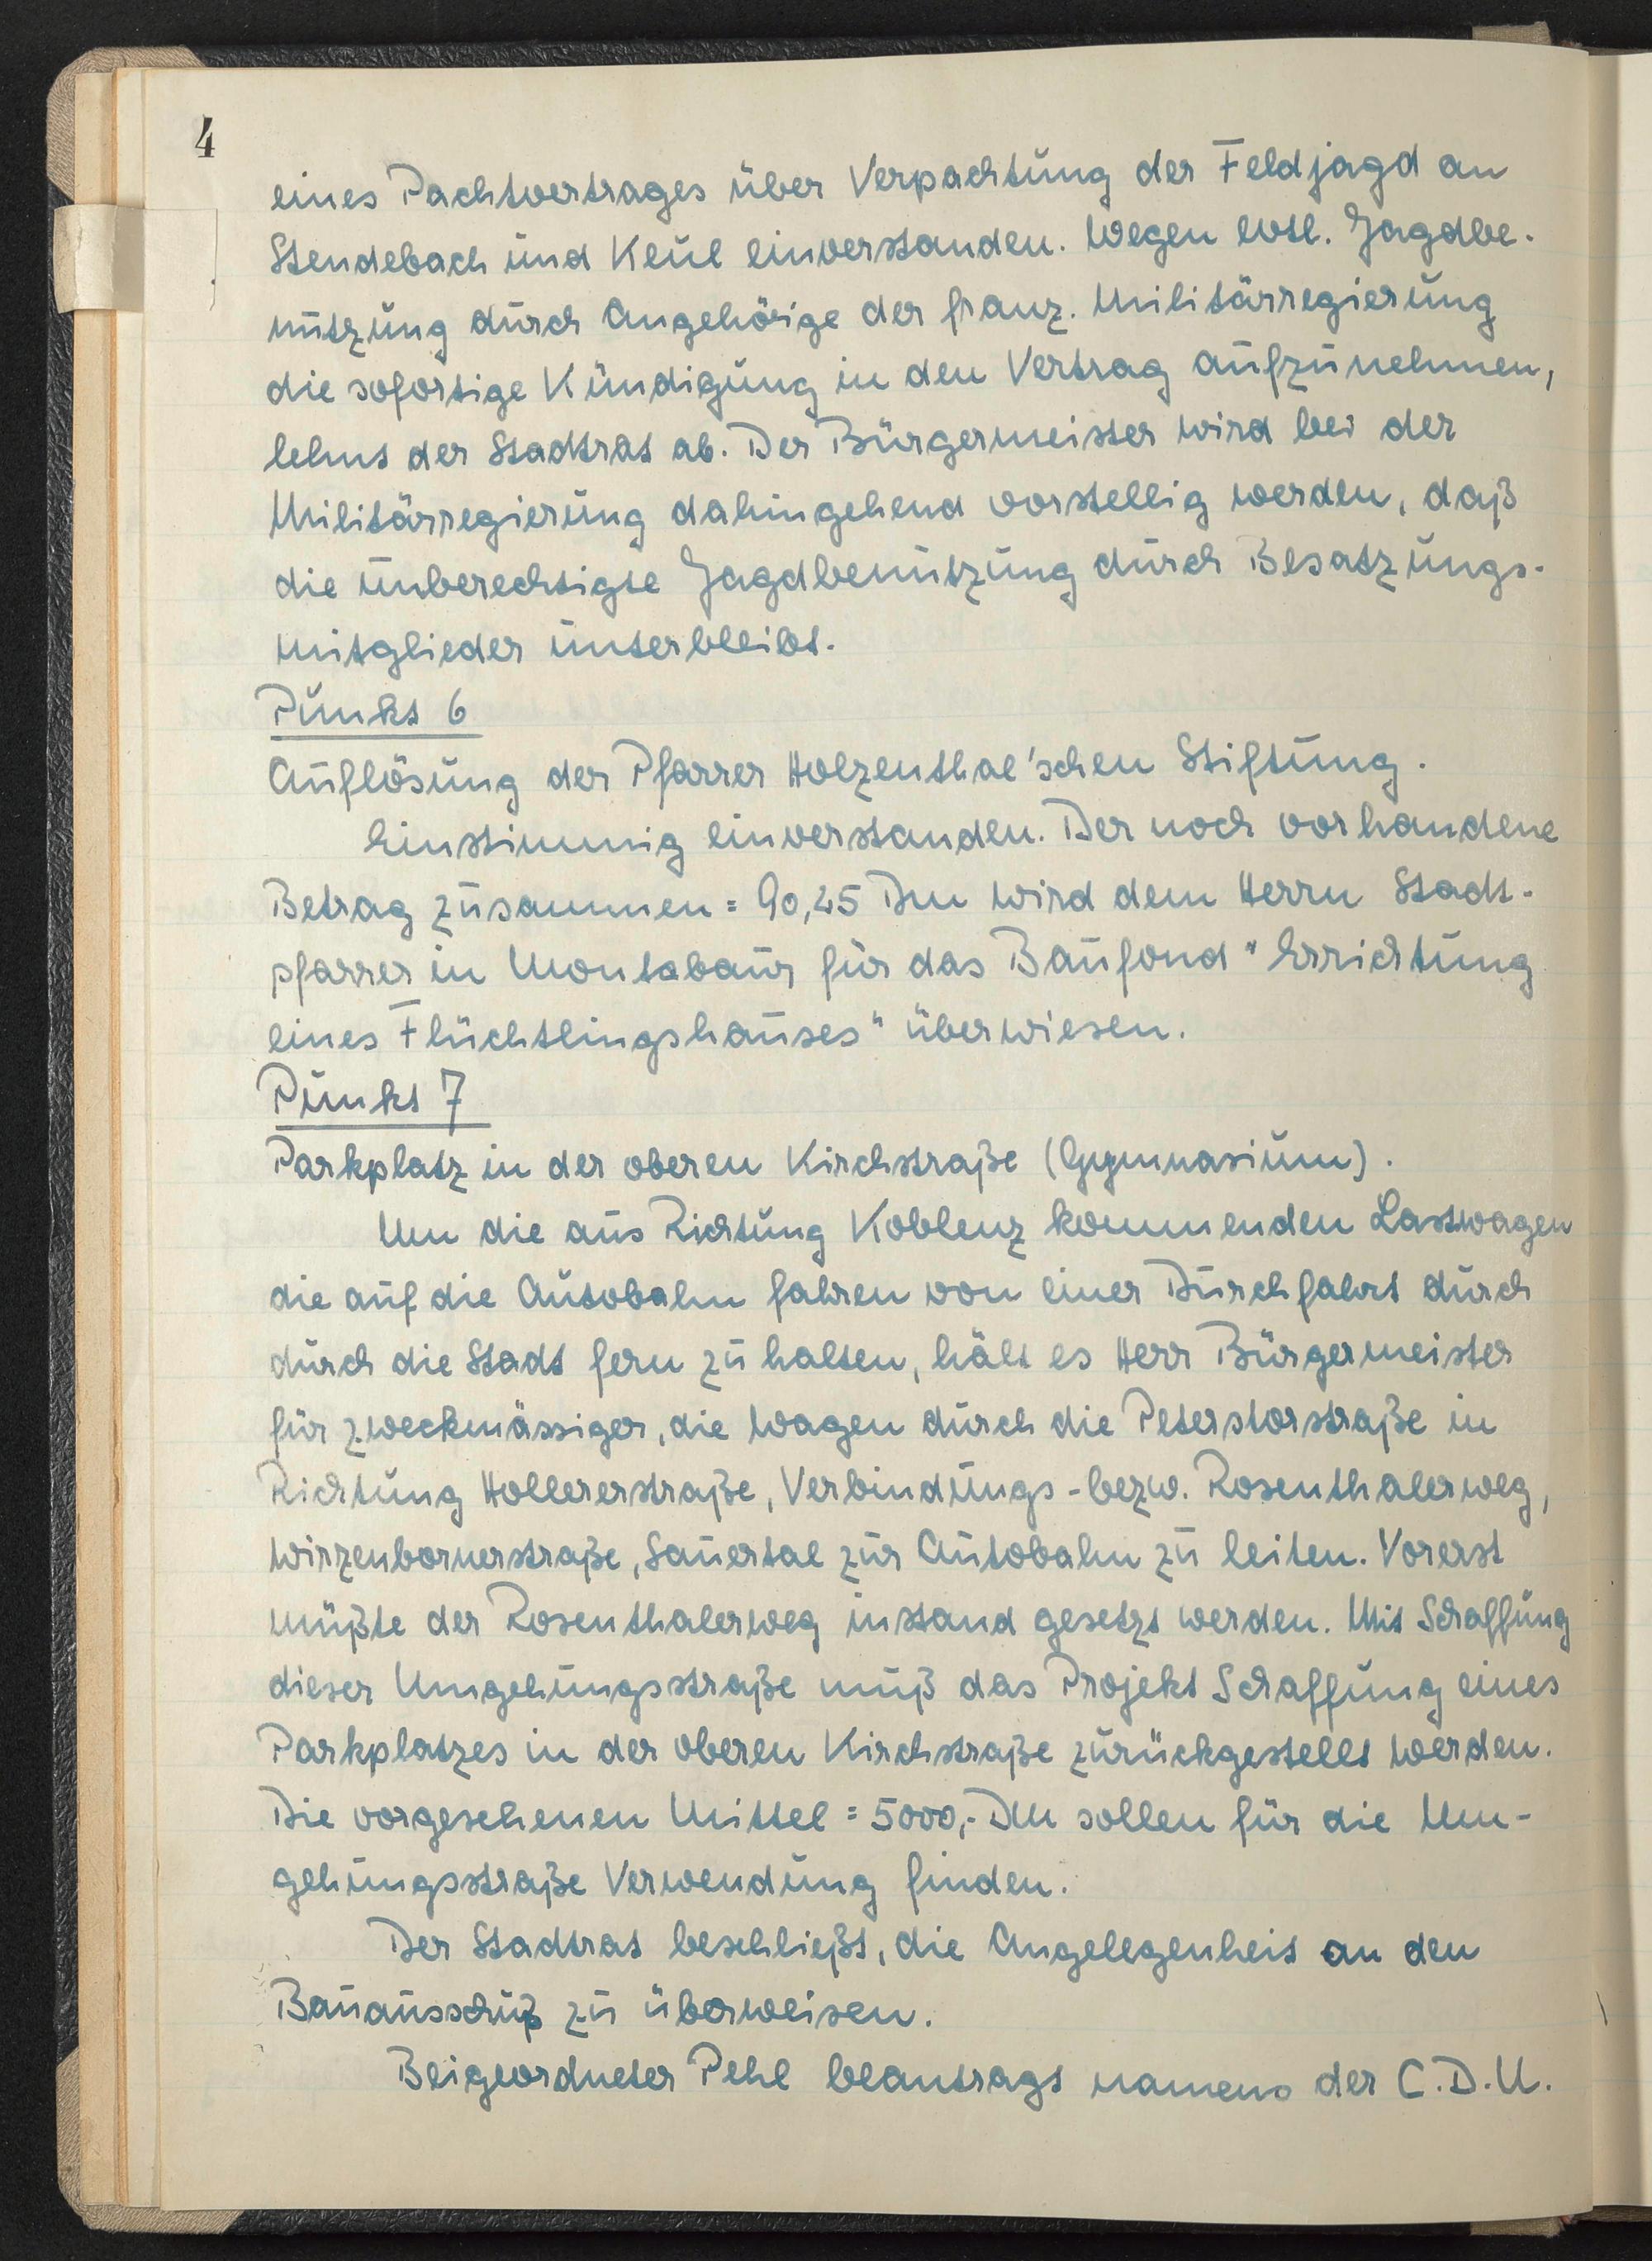 4
eines Pachtvertrages über Verpachtung der Feldjagd an
Stendebach und Keul einverstanden. Wegen evtl. Jagdbe-
nutzung durch Angehörige der franz. Militärregierung
die sofortige Kündigung in den Vertrag aufzunehmen,
lehnt der Stadtrat ab. Der Bürgermeister wird bei der
Militärregierung dahingehend vorstellig werden, daß
die unberechtigte Jagdbenutzung durch Besatzungs-
mitglieder unterbleibt.
Punkt 6
Auflösung der Pfarrer Holzenthal'schen Stiftung.
Einstimmig einverstanden. Der noch vorhandene
Betrag zusammen = 90,25 Dm wird dem Herrn Stadt-
pfarrer in Montabaur für das Baufond "Errichtung
eines Flüchtlingshauses" überwiesen.
Punkt 7
Parkplatz in der oberen Kirchstraße (Gymnasium).
Um die aus Richtung Koblenz kommenden Lastwagen
die auf die Autobahn fahren von einer Durchfahrt durch
durch die Stadt fern zu halten, hält es Herr Bürgermeister
für zweckmässiger, die Wagen durch die Peterstorstraße in
Richtung Hollererstraße, Verbindungs-bezw. Rosenthalerweg,
Wirzenbornerstraße, Sauertal zur Autobahn zu leiten. Vorerst
müßte der Rosenthalerweg instand gesetzt werden. Mit Schaffung
dieser Umgehungsstraße muß das Projekt Schaffung eines
Parkplatzes in der oberen Kirchstraße zurückgestellt werden.
Die vorgesehenen Mittel = 5000,- DM sollen für die Um-
gehungsstraße Verwendung finden.
Der Stadtrat beschließt, die Angelegenheit an den
Bauausschuß zu überweisen.
Beigeordneter Pehl beantragt namens der C.D.U.